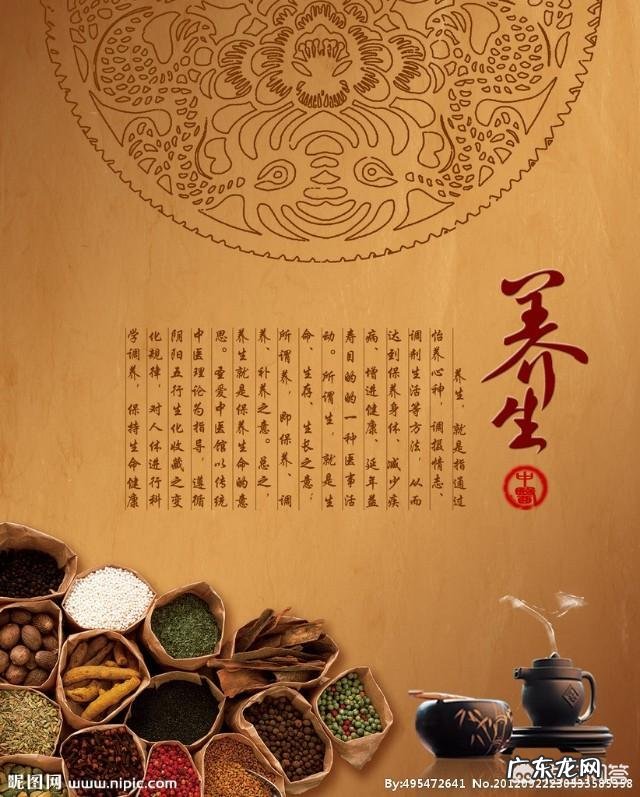 养生
中醫
养生，就是指通过
怡养心神，调摄情志、
调剂生活等方法 从而
达到保养身体、减少疾
病、增进健康、延年益
寿目的的一种医事活
动。所谓生，就是生
命、生存、生长之意；
所谓养，即保养、调
养、补养之意。总之，
养生就是保养生命的意
思。圣爱中医馆以传统
中医理论为指导，遵循
阴阳五行生化收藏之变
化规律，对人体进行科
学调养，保持生命健康
昵图网 www.nipic.com
By:495472641
广东龙网